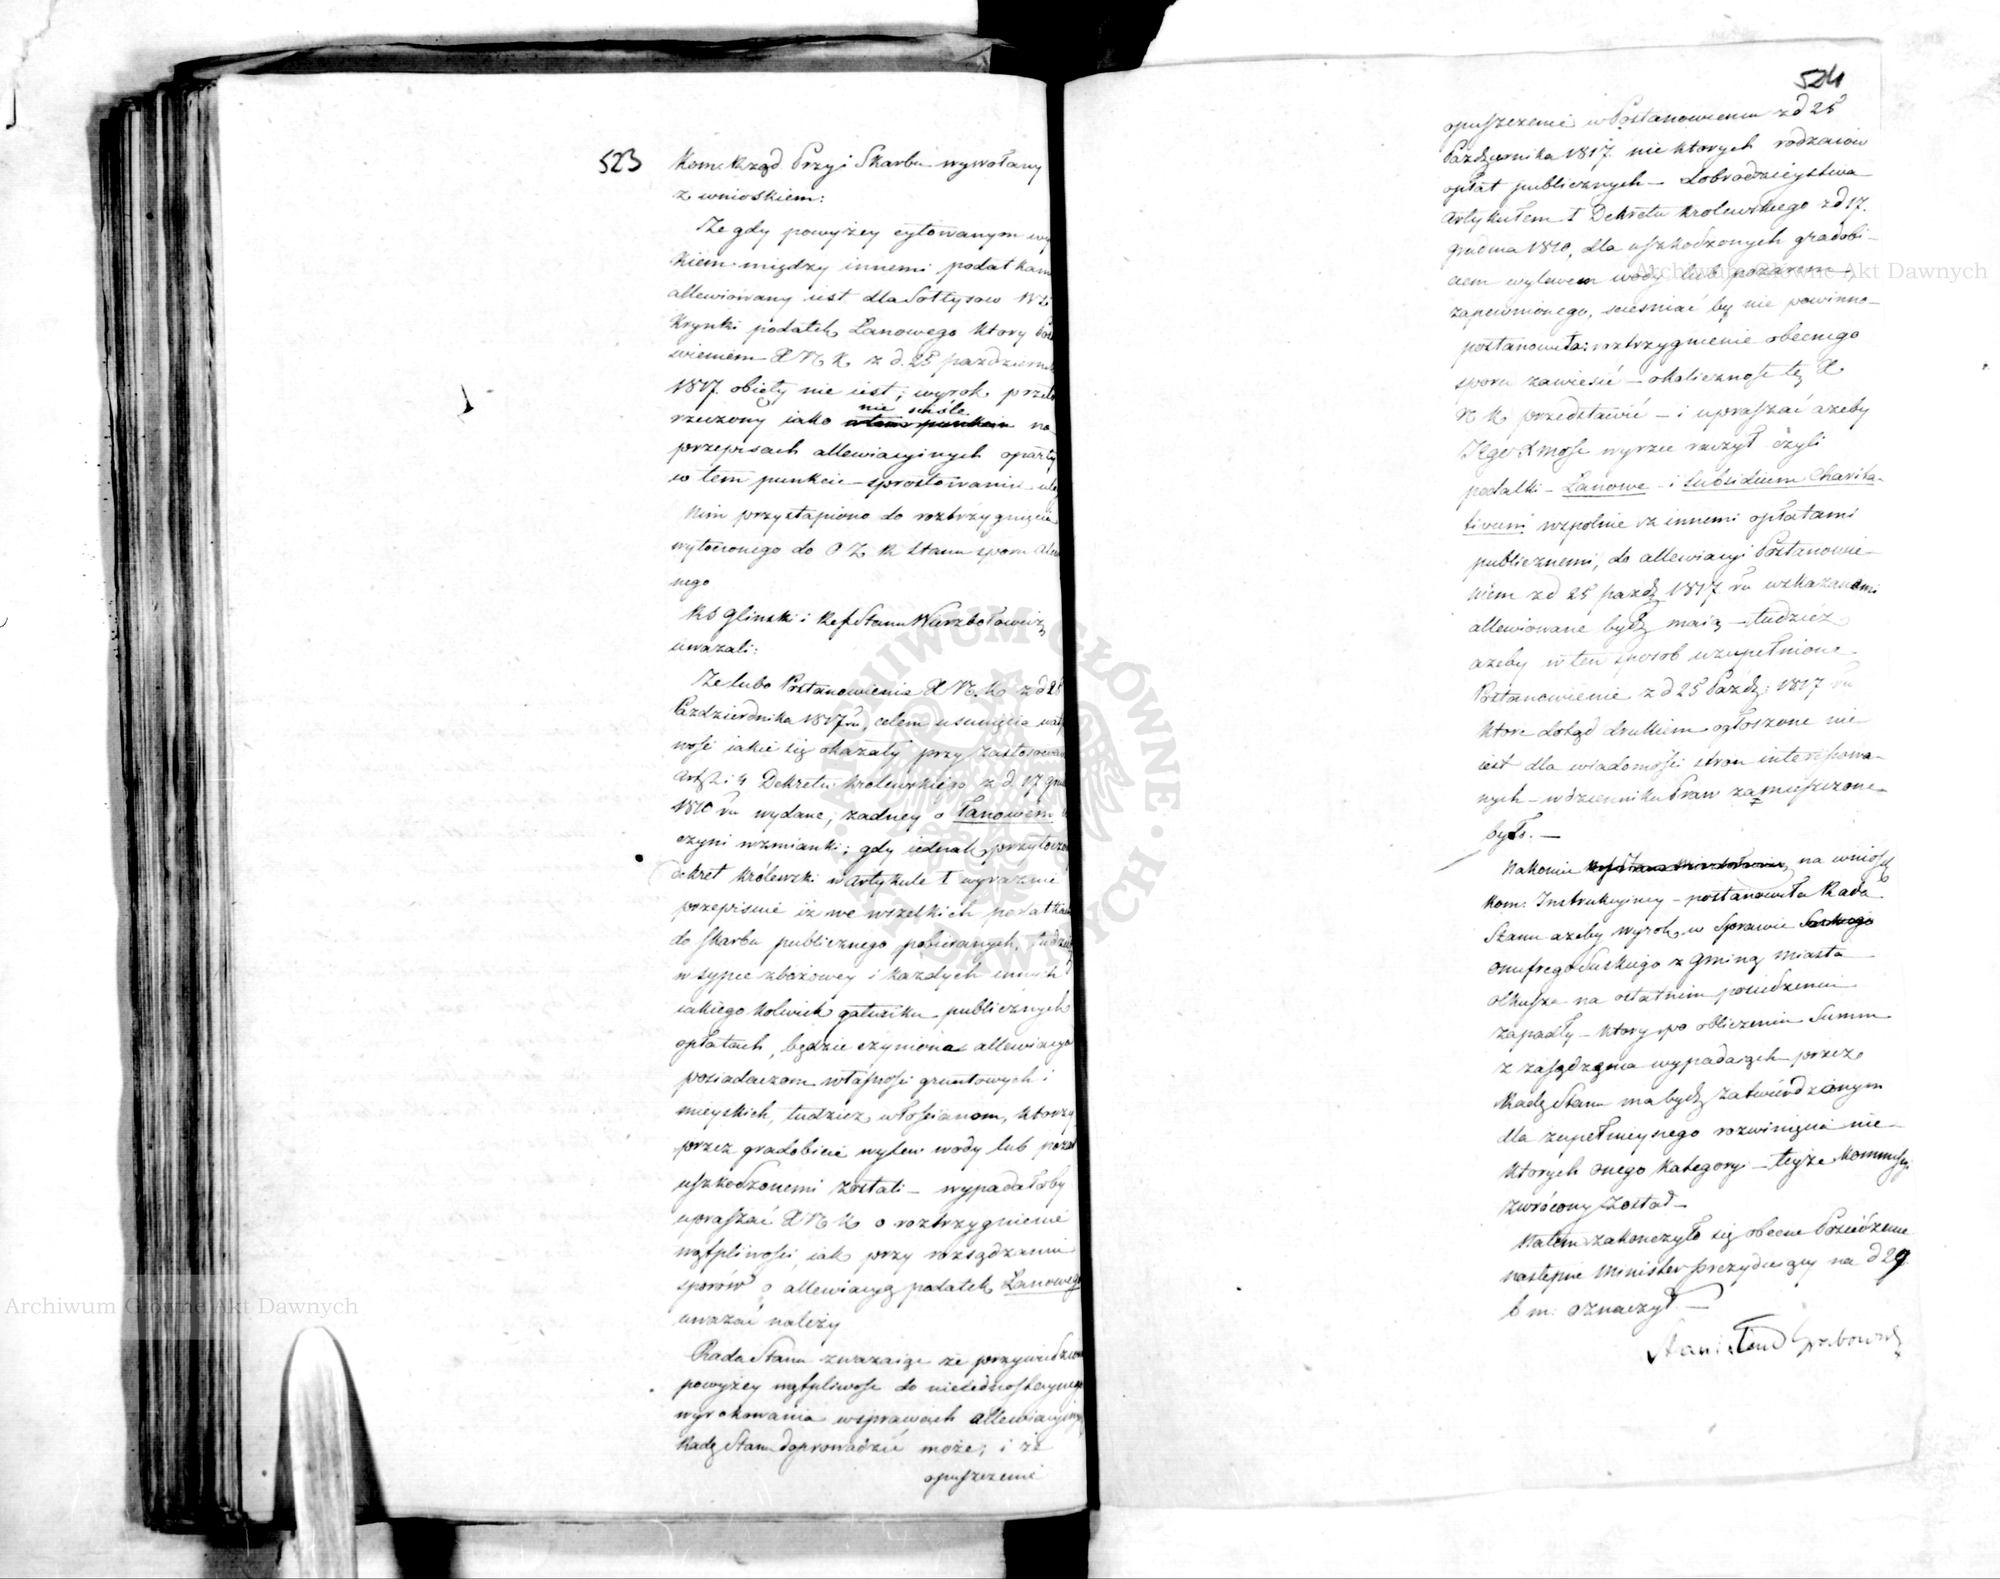 523
Kom: Rząd. Przy: i Skarbu wywołany
z wnioskiem:
Że gdy powyżey cytowanym wy
kiem między innemi podatkam
allewiowany iest dla Sołtysow Wsi
Krynki podatek Łanowego ktory Pos
wieniem X N K z d. 25 pazdzierni
1817. obięty nie iest; wyrok przeto
rzeczony iako nie wcale na
przepisach allewiacyinych oparty
w tem punkcie – sprostowaniu ule
Nim przystąpiono do roztrzygnięcia
wytoczonego do O Z R Stanu sporu
nego
RS Glinski i Ref Stanu Wierzbołowicz
uwazali:
Że lubo Postanowienie X N K z d 25
Pazdziernika 1817 ru, celem usunięcia wąt
wosci iakie się okazały przy zastosowan
Art 2 i 4 Dekretu Krolewskiego z d. 17 gru
1810 ru wydane, zadney o Łanowem
czyni wzmianki; gdy iednak przytoczo
dekret Królewski w Artykule 1 wyraznie
przepisuie iż we wszelkich podatkac
do skarbu publicznego pobieranych, tudzie
w sypce zbożowey i kazdych innych
iakiego kolwiek gatunku publicznych
opłatach, będzie czyniona allewiacya
posiadaczom własnosci gruntowych i
mieyskich, tudzież włoscianom, ktorzy
przez gradobicie wylew wody lub pożar
uszkodzonemi zostali – wypadałoby
upraszać X N K o roztrzygnienie
wątpliwosci, iak przy rozsądzaniu
sporów o allewiacyą podatek Łanowego
uważać nalezy
Rada Stanu zwazaiąc że przywiedzion
powyżey wątpliwosc do nieiednostaynego
wyrokowania w sprawach allewiacyiny
Radę Stanu doprowadzić może; i że
opuszczenie
524
opuszczenie w Postanowieniu z d 25
Pazdziernika 1817. nie ktorych rodzaiow
opłat publicznych – Dobrodzieystwa
Artykułem 1 Dekretu Krolewskiego z d 17.
Grudnia 1810, dla uszkodzonych gradobi-
ciem wylewem wody lub pożarem –
zapewnionego, scieśniać by nie powinno –
postanowiła: roztrzygnienie obecnego
sporu zawiesić – okolicznosc tę X
N K przedstawić – i upraszać azeby
Jego X mosc wyrzec raczył czyli
podatki – Łanowe – i Subsidium Charita-
tivum wspolnie z innemi opłatami
publicznemi, do allewiacyi Postanowie-
niem z d 25 pazdz 1817 ru wskazanemi
allewiowane bydz maią – tudzież
azeby w ten sposob uzupełnione
Postanowienie z d 25 Pazdz: 1817 ru
ktore dotąd drukiem ogłoszone nie
iest dla wiadomosci stron interessowa-
nych – w dzienniku Praw zamieszczone
było. –
Nakoniec na wniosek
Kom: Instrukcyiney – postanowiła Rada
Stanu azeby wyrok w Sprawie
Onufrego Suskiego z Gminą miasta
Olkusza na ostatnim posiedzeniu
zapadły – ktory po obliczeniu Summ
z zasądzenia wypadaiących przez
Radę Stanu ma bydz zatwierdzonym
dla zupełnieyszego rozwinięcia nie-
ktorych onego kategoryi – teyże Kommissyi
zwrócony został –
Natem zakonczyło się obecne Posiedzenie
następne Minister prezyduiący na d 29.
b m: oznaczył. –
Stanisław Grabowski